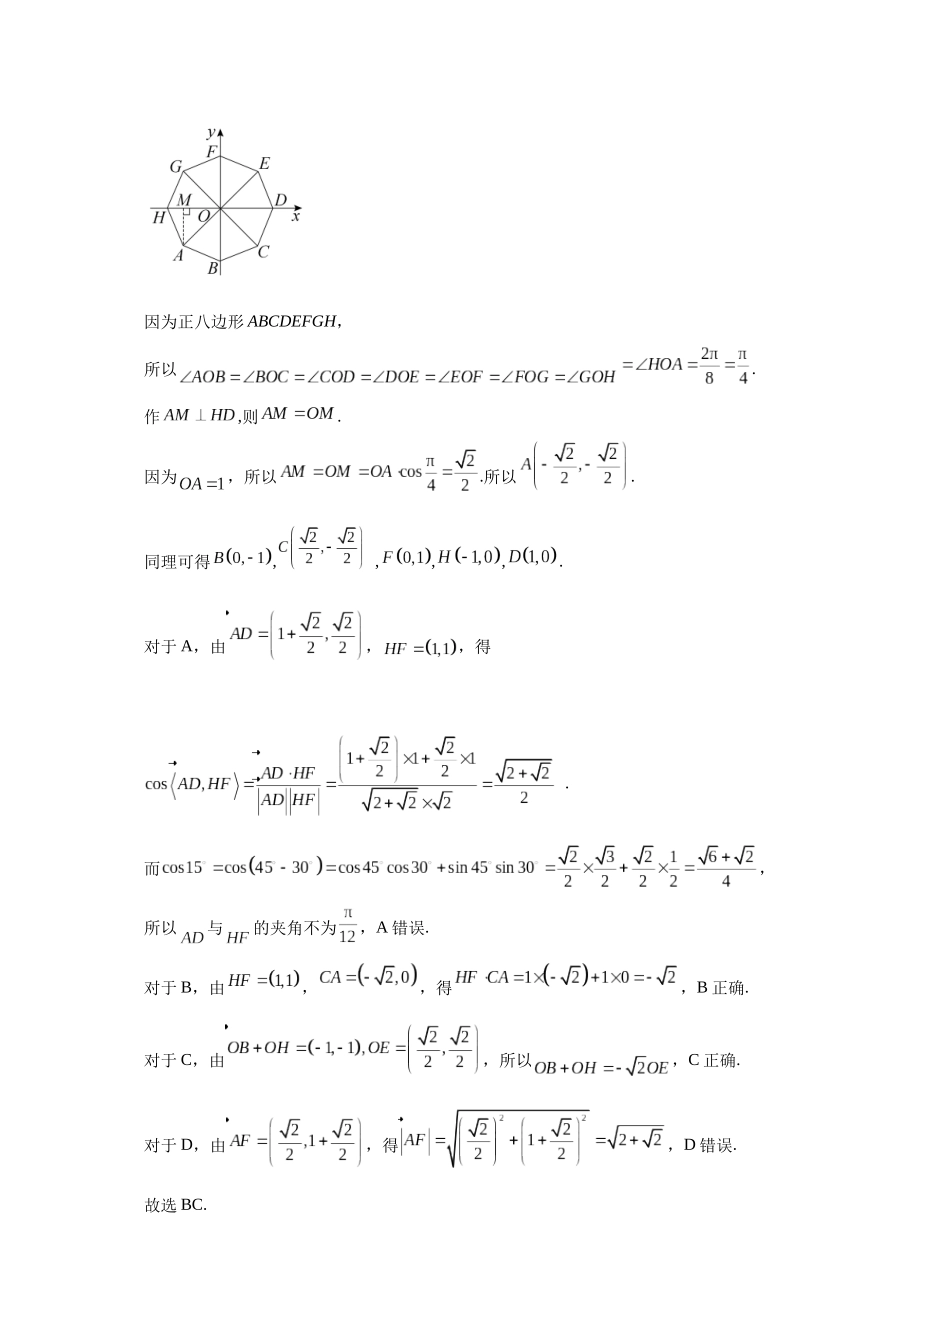 y
F
G E
M D
H O x
A C
B
因为正八边形 ABCDEFGH，
所以 ∠AOB = ∠BOC = ∠COD = ∠DOE = ∠EOF = ∠FOG = ∠GOH = ∠HOA = 2π/8 = π/4 .
作 AM ⊥ HD ,则 AM = OM .
因为 OA = 1 ，所以 AM = OM = OA · cos π/4 = √2/2 .所以 A(-√2/2, -√2/2) .
同理可得 B(0, -1) , C(√2/2, -√2/2) , F(0,1) , H(-1,0) , D(1,0) .
对于 A，由 AD = (1+√2/2, √2/2) ， HF = (1,1) ，得
cos⟨AD, HF⟩ = AD · HF / |AD||HF| = ((1+√2/2)×1+√2/2×1) / (√(2+√2)×√2) = √(2+√2)/2 .
而 cos15° = cos(45° - 30°) = cos45° cos30° + sin45° sin30° = √2/2 × √3/2 + √2/2 × 1/2 = (√6+√2)/4 ，
所以 AD 与 HF 的夹角不为 π/12 ，A 错误.
对于 B，由 HF = (1,1) ， CA = (-√2,0) ，得 HF · CA = 1×(-√2)+1×0 = -√2 ，B 正确.
对于 C，由 OB + OH = (-1, -1), OE = (√2/2, √2/2) ，所以 OB + OH = -√2OE ，C 正确.
对于 D，由 AF = (√2/2, 1+√2/2) ，得 |AF| = √((√2/2)² + (1+√2/2)²) = √(2+√2) ，D 错误.
故选 BC.